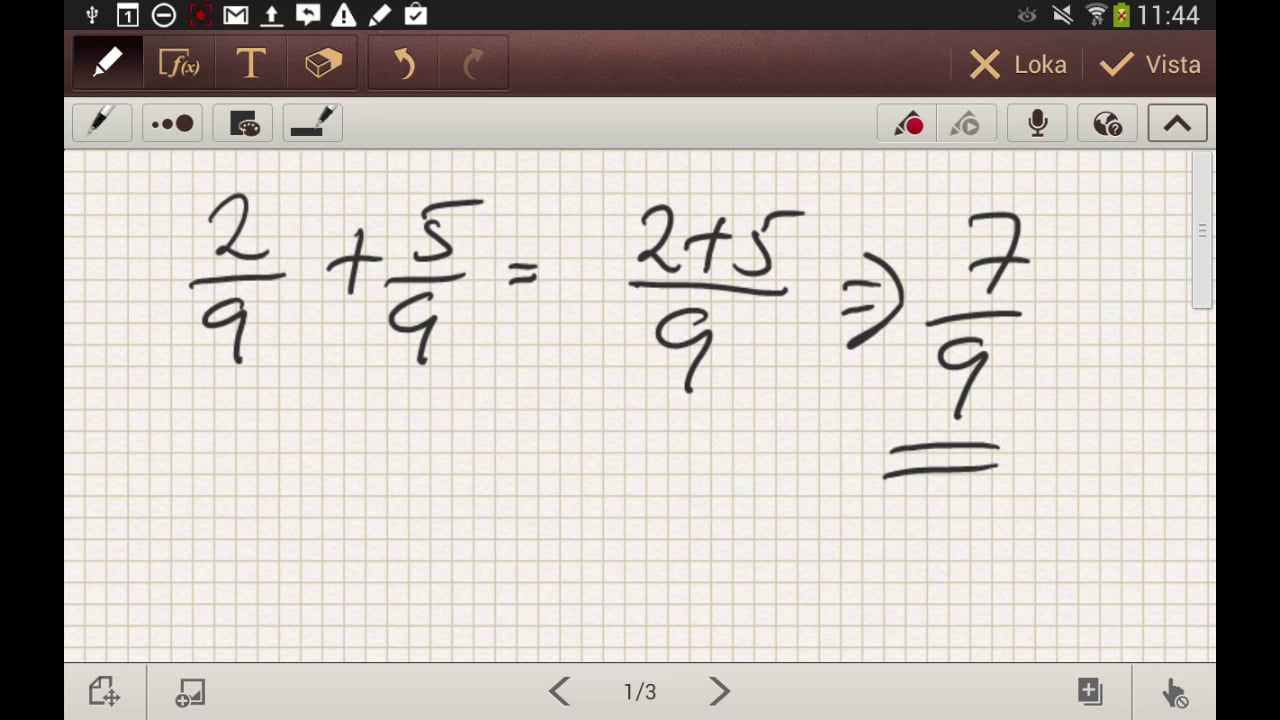 1 11:44
f(x) T Loka Vista
2/9 + 5/9 = (2+5)/9 => 7/9
1/3